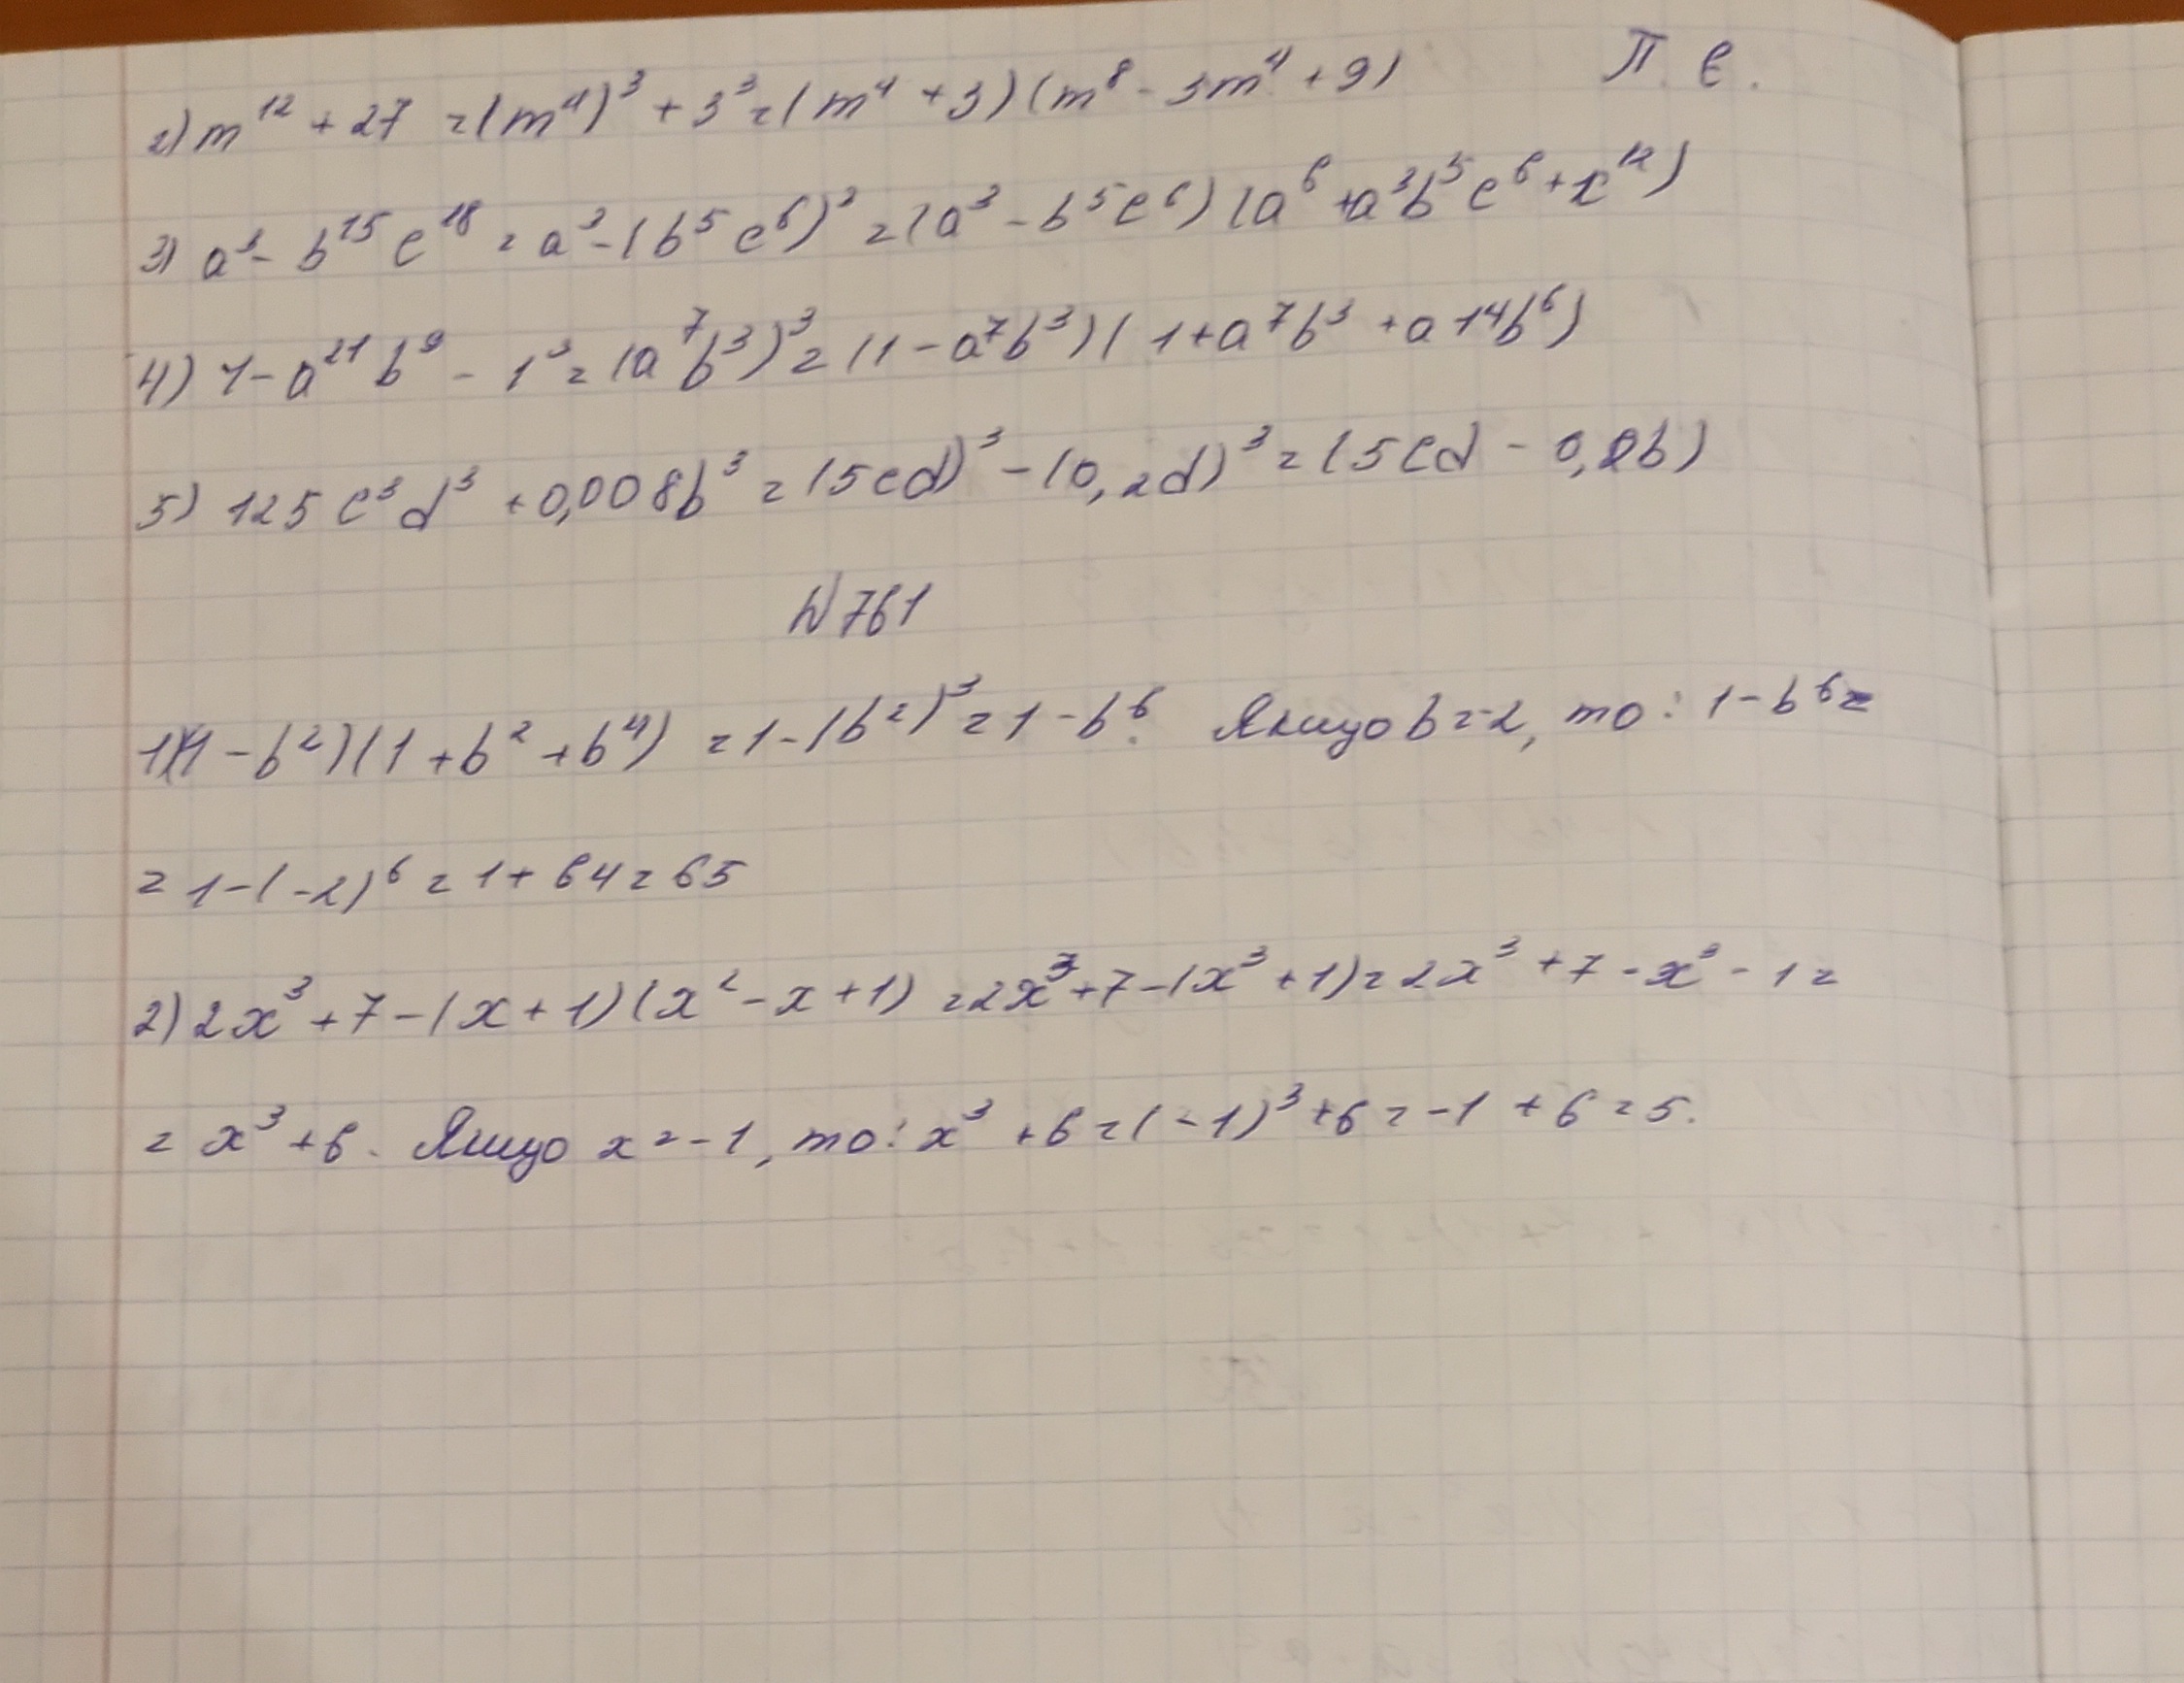 П. Є.
2) m¹² + 27 = (m⁴)³ + 3³ = (m⁴ + 3)(m⁸ - 3m⁴ + 9)
3) a³ - b¹⁵c¹⁸ = a³ - (b⁵c⁶)³ = (a³ - b⁵c⁶)(a⁶ + a³b⁵c⁶ + c¹²)
4) 1 - a²¹b⁹ - 1³ = (a⁷b³)³ = (1 - a⁷b³)(1 + a⁷b³ + a14b⁶)
5) 125c³d³ + 0,008b³ = (5cd)³ - (0,2d)³ = (5cd - 0,2b)
N761
1)(1 - b²)(1 + b² + b⁴) = 1 - (b²)³ = 1 - b⁶. Якщо b = -2, то: 1 - b⁶ =
= 1 - (-2)⁶ = 1 + 64 = 65
2) 2x³ + 7 - (x + 1)(x² - x + 1) = 2x³ + 7 - (x³ + 1) = 2x³ + 7 - x³ - 1 =
= x³ + 6. Якщо x = -1, то: x³ + 6 = (-1)³ + 6 = -1 + 6 = 5.